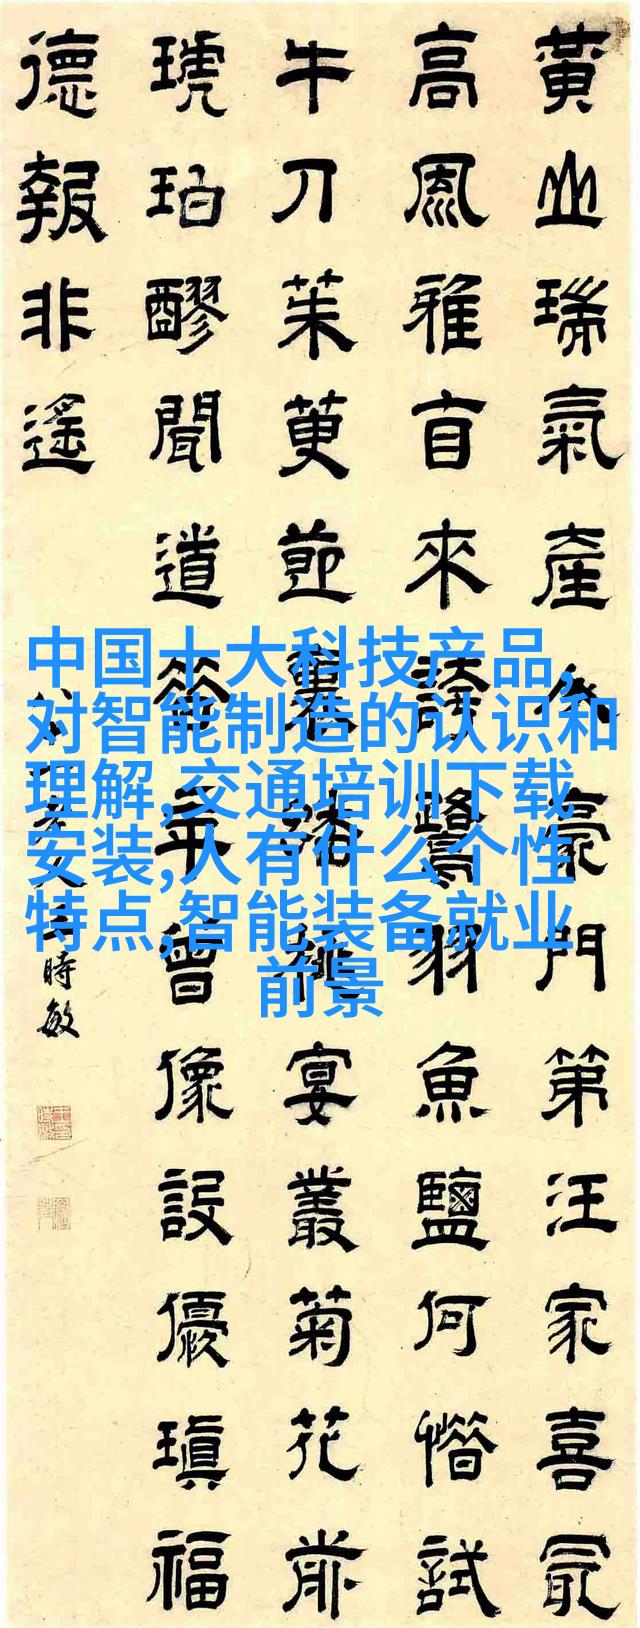 中国十大科技产品,
对智能制造的认识和
理解,交通培训下载
安装,人有什么个性
特点,智能装备就业
前景
黃山瑞氣產人豪門第汪家喜最
高風雅盲來鷺羽魚鹽何惜試
牛刀茱萸節宴叢菊花前
琥珀醪聞道華年曾像設優瑱福
德報非遙
老人王時敏